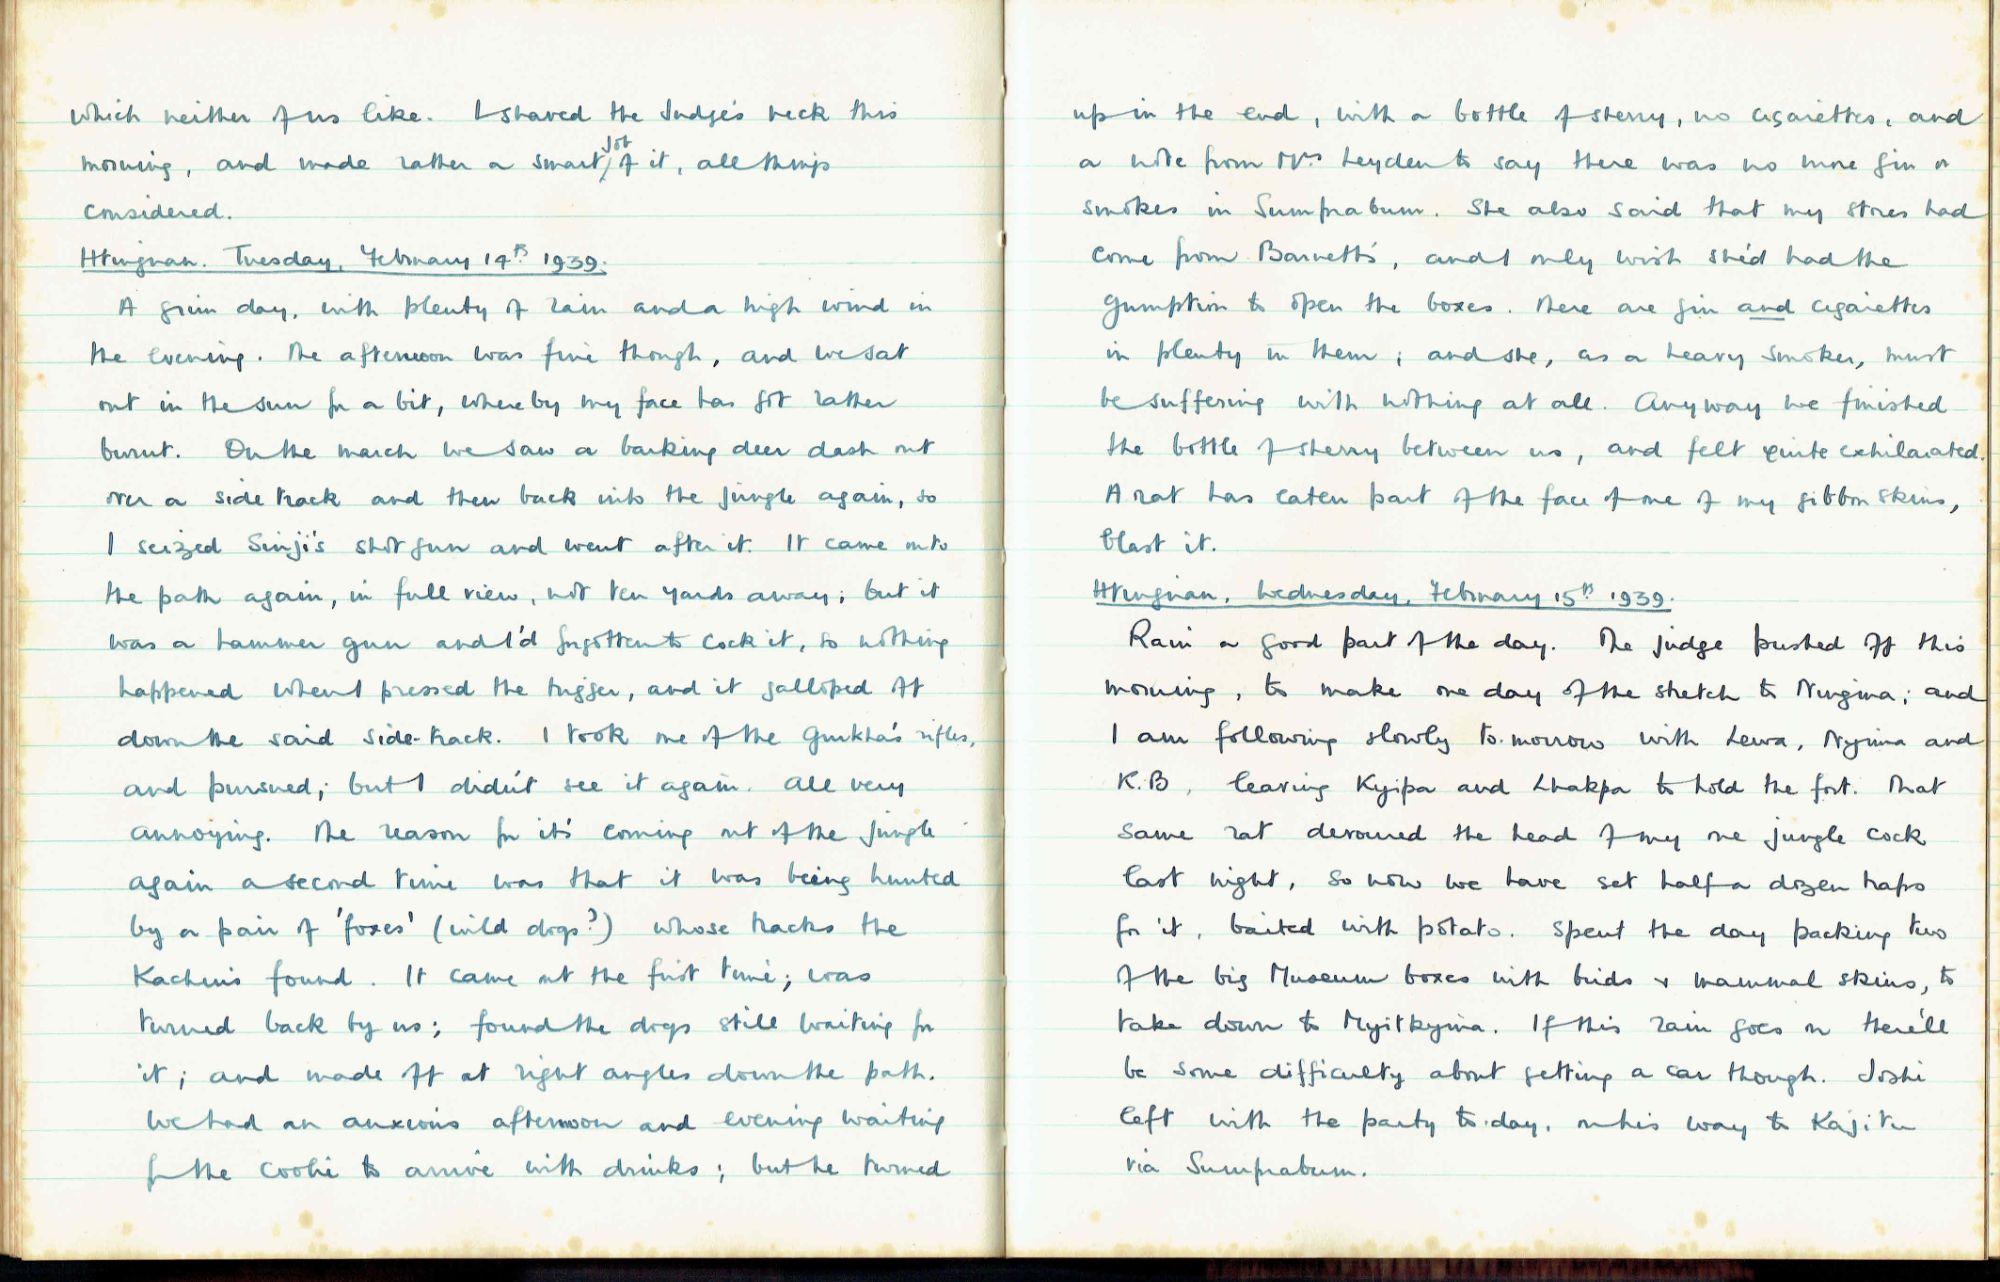 which neither of us like. I shaved the Judge's neck this
morning, and made rather a smart job of it, all things
considered.
Htingnan. Tuesday, February 14th 1939.
A grim day, with plenty of rain and a high wind in
the evening. The afternoon was fine though, and we sat
out in the sun for a bit, whereby my face has got rather
burnt. On the march we saw a barking deer dash out
over a side track and then back into the jungle again, so
I seized Sinji's shot gun and went after it. It came onto
the path again, in full view, not ten yards away; but it
was a hammer gun and I'd forgotten to cock it, so nothing
happened when I pressed the trigger, and it galloped off
down the said side-track. I took one of the Gurkha's rifles,
and pursued; but I didn't see it again. All very
annoying. The reason for it's coming out of the jungle
again a second time was that it was being hunted
by a pair of 'foxes' (wild dogs?) whose tracks the
Kachins found. It came out the first time; was
turned back by us; found the dogs still waiting for
it; and made off at right angles down the path.
We had an anxious afternoon and evening waiting
for the coolie to arrive with drinks; but he turned
up in the end, with a bottle of sherry, no cigarettes, and
a note from Mrs Leyden to say there was no more gin or
smokes in Sumprabum. She also said that my stores had
come from Barnett's, and I only wish she'd had the
gumption to open the boxes. There are gin and cigarettes
in plenty in them; and she, as a heavy smoker, must
be suffering with nothing at all. Anyway we finished
the bottle of sherry between us, and felt quite exhilarated.
A rat has eaten part of the face of one of my gibbon skins,
blast it.
Htingnan, Wednesday, February 15th 1939.
Rain a good part of the day. The judge pushed off this
morning, to make one day of the stretch to Ningma; and
I am following slowly to-morrow with Lewa, Nyima and
K.B, leaving Kyipa and Lhakpa to hold the fort. That
same rat devoured the head of my one jungle cock
last night, so now we have set half a dozen traps
for it, baited with potato. Spent the day packing two
of the big Museum boxes with birds & mammal skins, to
take down to Myitkyina. If this rain goes on there'll
be some difficulty about getting a car though. Joshi
left with the party to-day, on his way to Kajitu
via Sumprabum.